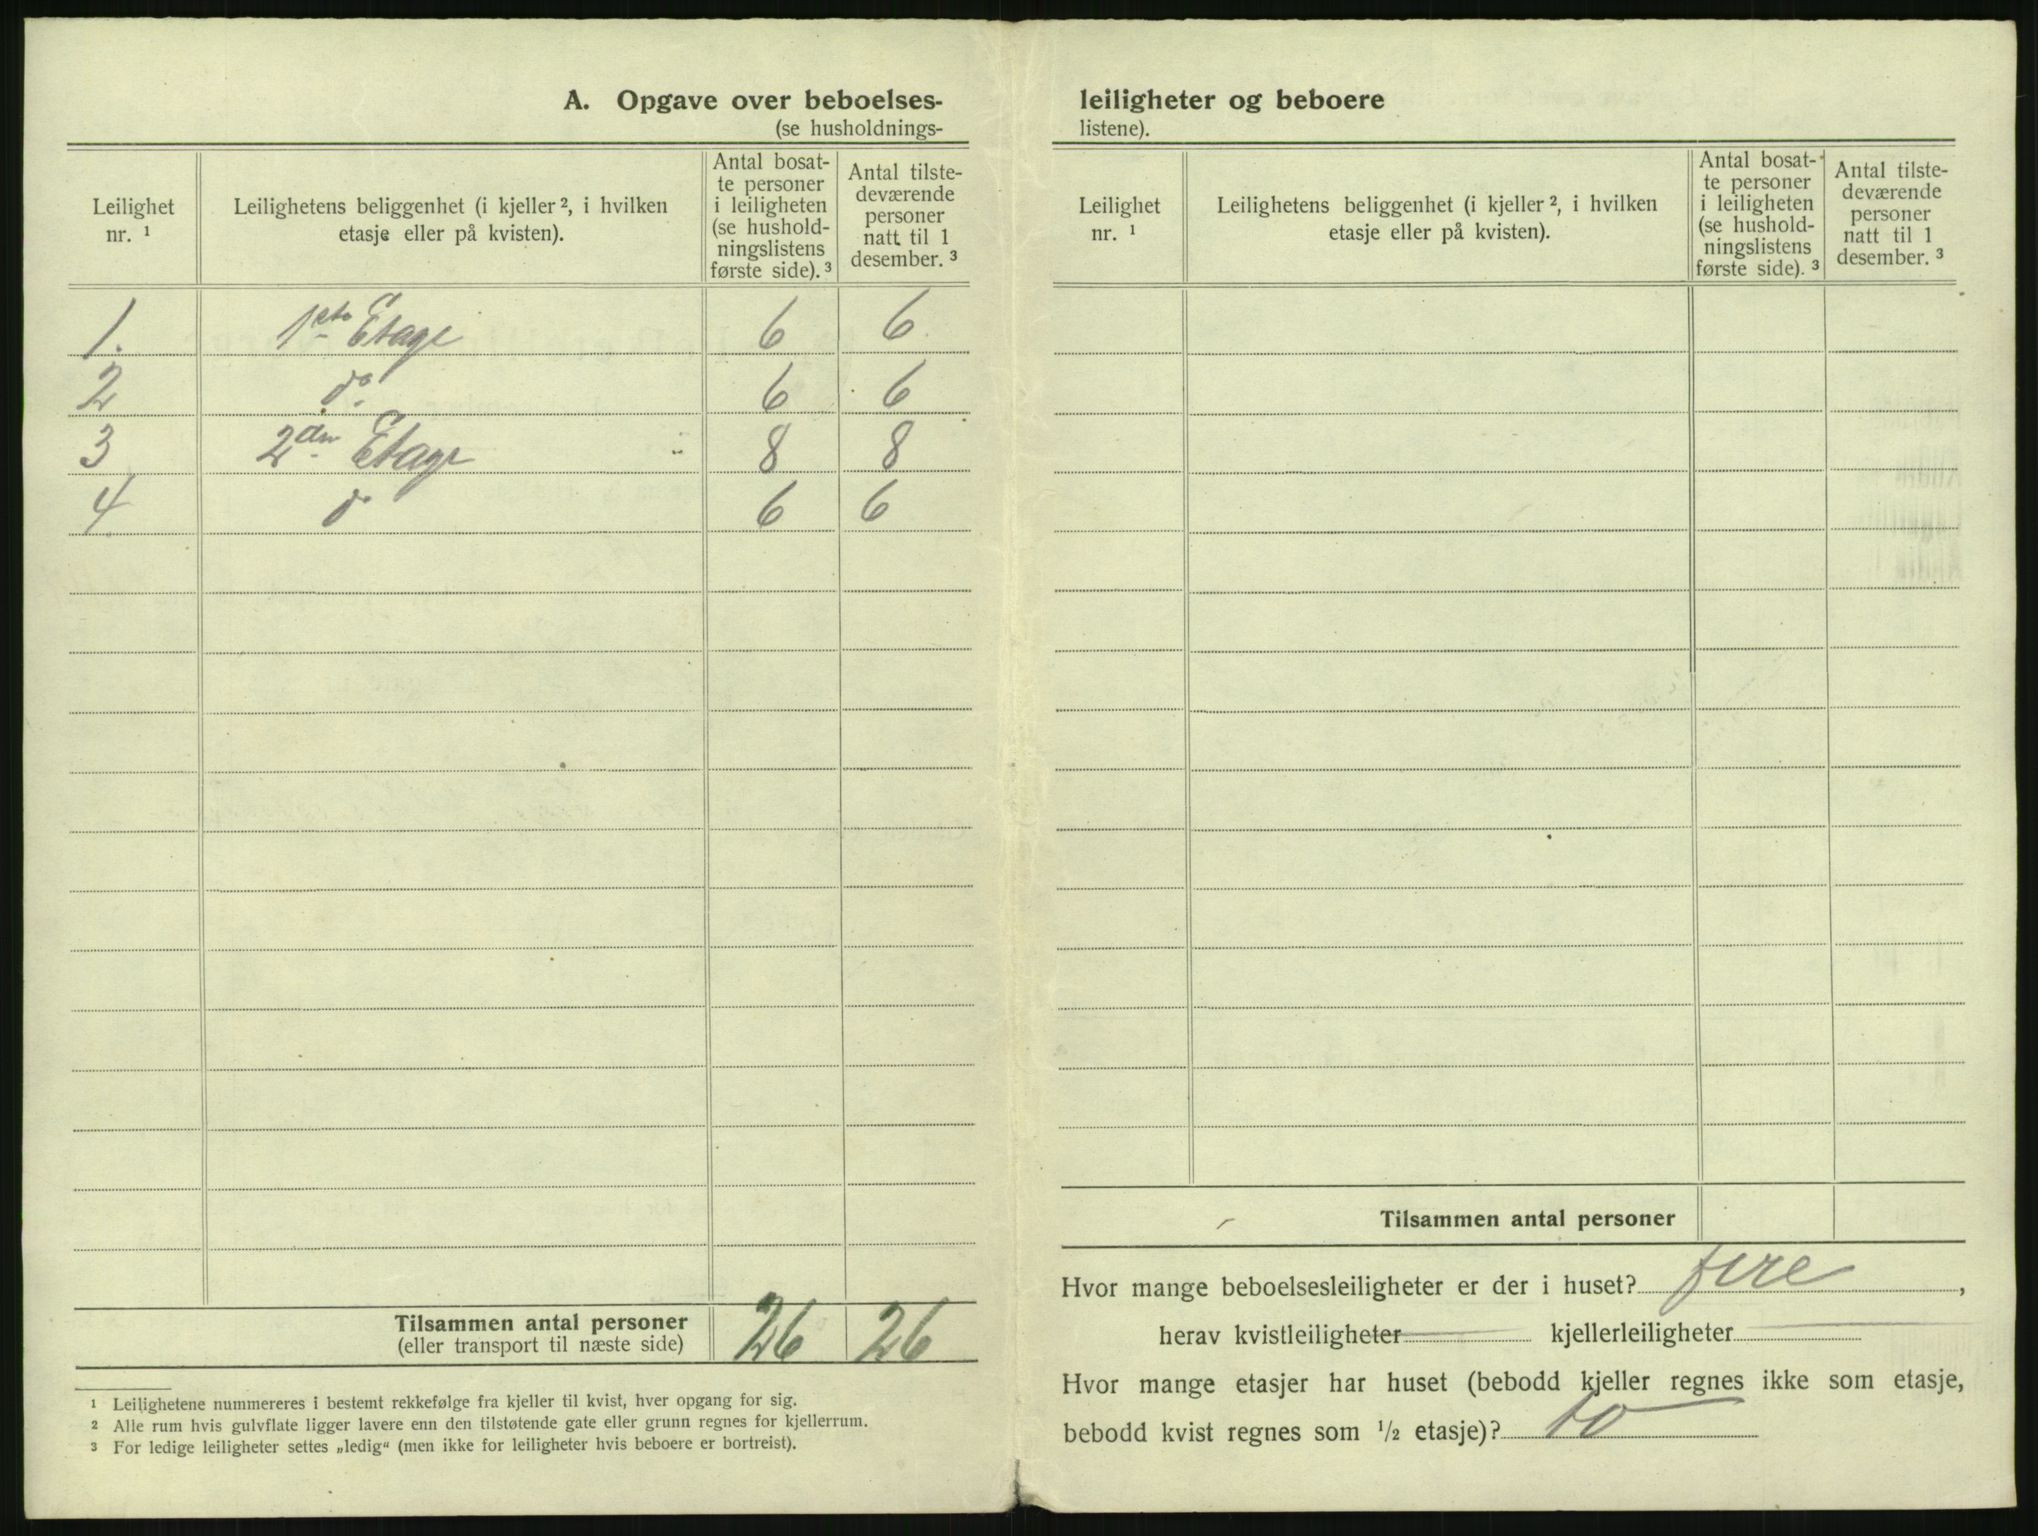 A. Opgave over beboelses-
(se husholdnings-
Leilighet
nr. 1
Leilighetens beliggenhet (i kjeller ², i hvilken
etasje eller på kvisten).
Antal bosat-
te personer
i leiligheten
(se hushold-
ningslistens
første side). ³
Antal tilste-
deværende
personer
natt til 1
desember. ³
1. 1ste Etage 6 6
2 do. 6 6
3 2den Etage 8 8
4. do 6 6
Tilsammen antal personer
(eller transport til næste side) 26 26
¹ Leilighetene nummereres i bestemt rekkefølge fra kjeller til kvist, hver opgang for sig.
² Alle rum hvis gulvflate ligger lavere enn den tilstøtende gate eller grunn regnes for kjellerrum.
³ For ledige leiligheter settes „ledig“ (men ikke for leiligheter hvis beboere er bortreist).
leiligheter og beboere
listene).
Leilighet
nr. ¹
Leilighetens beliggenhet (i kjeller ², i hvilken
etasje eller på kvisten).
Antal bosat-
te personer
i leiligheten
(se hushold-
ningslistens
første side). ³
Antal tilste-
deværende
personer
natt til 1
desember. ³
Tilsammen antal personer
Hvor mange beboelsesleiligheter er der i huset? fire,
herav kvistleiligheter — kjellerleiligheter —
Hvor mange etasjer har huset (bebodd kjeller regnes ikke som etasje,
bebodd kvist regnes som ½ etasje)? to